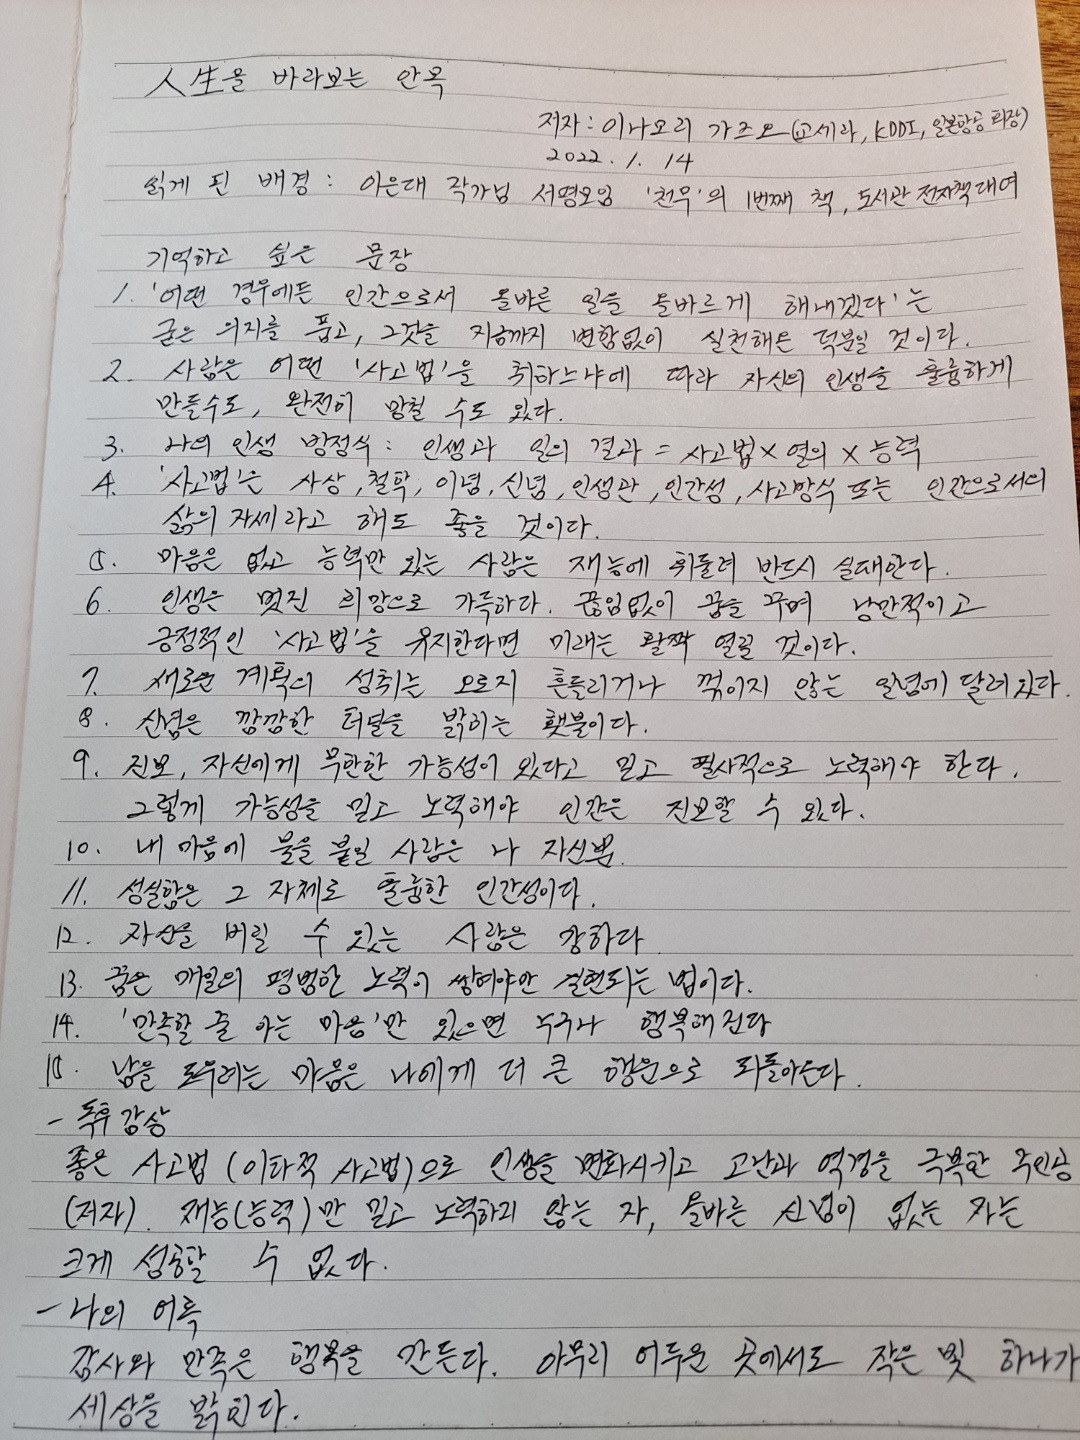 人生을 바라보는 안목
저자 : 이나모리 가즈오(교세라, KDDI, 일본항공 회장)
2022. 1. 14
읽게 된 배경 : 이은대 작가님 서평모임 '천무'의 1번째 책, 도서관 전자책 대여
기억하고 싶은 문장
1. '어떤 경우에든 인간으로서 올바른 일을 올바르게 해내겠다'는
굳은 의지를 품고, 그것을 지금까지 변함없이 실천해온 덕분일 것이다.
2. 사람은 어떤 '사고법'을 취하느냐에 따라 자신의 인생을 훌륭하게
만들수도, 완전히 망칠 수도 있다.
3. 나의 인생 방정식 : 인생과 일의 결과 = 사고법 × 열의 × 능력
4. '사고법'은 사상, 철학, 이념, 신념, 인생관, 인간성, 사고방식 또는 인간으로서의
삶의 자세라고 해도 좋을 것이다.
5. 마음은 없고 능력만 있는 사람은 재능에 휘둘려 반드시 실패한다.
6. 인생은 멋진 희망으로 가득하다. 끊임없이 꿈을 꾸며 낭만적이고
긍정적인 '사고법'을 유지한다면 미래는 활짝 열릴 것이다.
7. 새로운 계획의 성취는 오로지 흔들리거나 꺾이지 않는 일념에 달려있다.
8. 신념은 깜깜한 터널을 밝히는 횃불이다.
9. 진보, 자신에게 무한한 가능성이 있다고 믿고 필사적으로 노력해야 한다.
그렇게 가능성을 믿고 노력해야 인간은 진보할 수 있다.
10. 내 마음에 불을 붙일 사람은 나 자신뿐.
11. 성실함은 그 자체로 훌륭한 인간성이다.
12. 자신을 버릴 수 있는 사람은 강하다
13. 꿈은 매일의 평범한 노력이 쌓여야만 실현되는 법이다.
14. '만족할 줄 아는 마음'만 있으면 누구나 행복해진다
15. 남을 도우려는 마음은 나에게 더 큰 행운으로 되돌아온다.
- 독후감상
좋은 사고법 (이타적 사고법)으로 인생을 변화시키고 고난과 역경을 극복한 주인공
(저자). 재능(능력)만 믿고 노력하지 않는 자, 올바른 신념이 없는 자는
크게 성공할 수 없다.
- 나의 어록
감사와 만족은 행복을 만든다. 아무리 어두운 곳에서도 작은 빛 하나가
세상을 밝힌다.